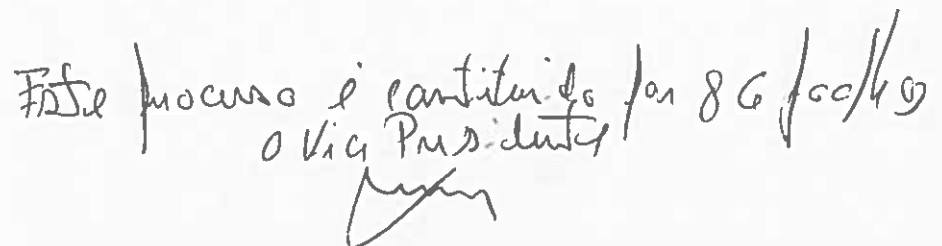 Este processo é constituido por 86 folhas
O Vice Presidente